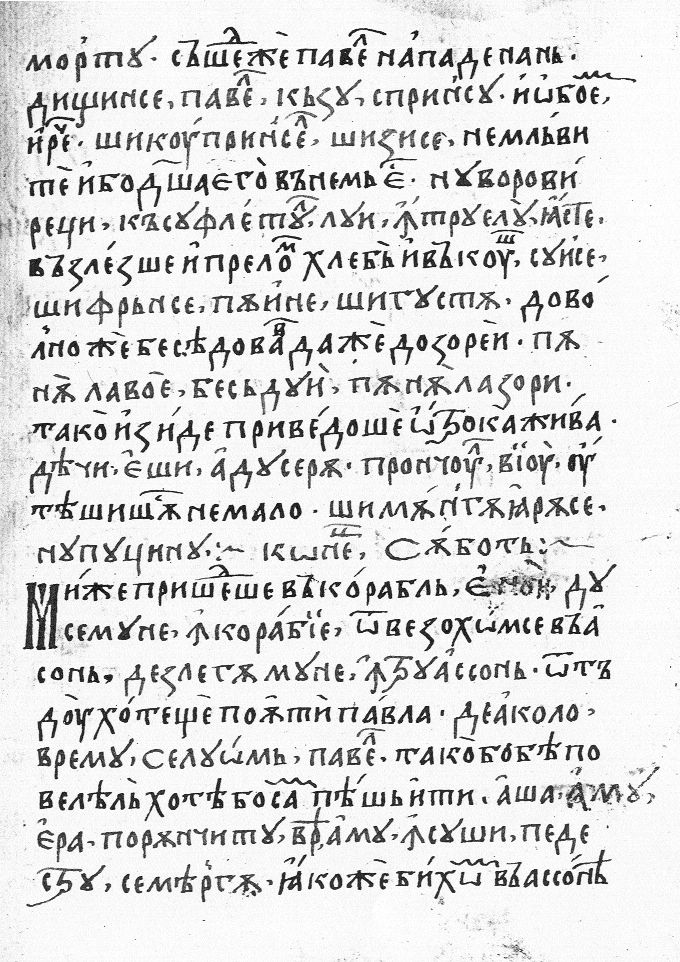 морту · съшеⷣже павеⷧ нападе нань ·
дишинсе, павеⷧ, къзу, сприн́су · и҆ ѡбое,
шикоу҆принсеⷧ, шизисе, немльви
те и҆бо дш҃а е҆го̀ въ немь е҆с҃ · ну ворови́
реци, къ суфлетуⷧ, луи, ꙟ҆труелꙋ̀, ꙗ҆сте ·
възлѣзше и҆ преломⷨ хлебь и҆ въкоуⷲ, суисе,
ши фрьнсе, пѫи҆не, ши густѫ · дово́
лно же бесѣдоваⷡ даже до зорей · пѫ
нѫ̀ лавое, бесьдуи, пѫнѫ ла зори ·
тако̀ и҆зи́де приведоше ѿрока жива ·
дѣчи, е҆ши, а҆дусерѫ · прончоуⷧ, вїоу̀, оу҆
тѣшишѫсѧ немало · ши мѫнгѫꙗ҆рѫсе,
ну пуцину :~ конеⷰ, Сѫботь :~
Ми́же пришеⷣше въ корабль, е҆ ной, ду
семуне, ꙟ҆ корабїе, ѿвезохѡмсе въ а҆
сонь, дезлегѫмуне, ꙟ҆трꙋ а҆ссонь · ѿтъ
доу хотеще поѧти павла · де а҆коло,
врему, Се луѡмь, павеⷧ · тако бо бѣ по
велѣль хоте бо са пѣшь ити · а҆ша · а҆му,
е҆ра · порѫнчиту, врѣ а҆му, ꙟ҆суши, педе
стру, семѣргѫ · ꙗ҆коже бихѡⷨ въ ассо́нѣ